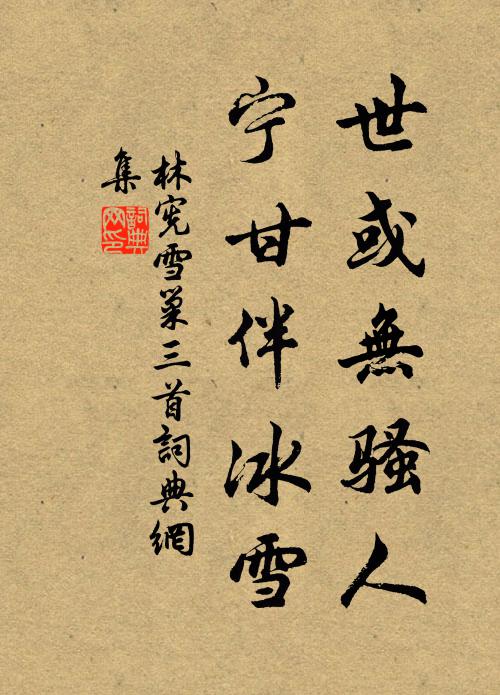 世或無骚人
宁甘伴冰雪
林宪雪巢三首詞典網
集
詞典网印